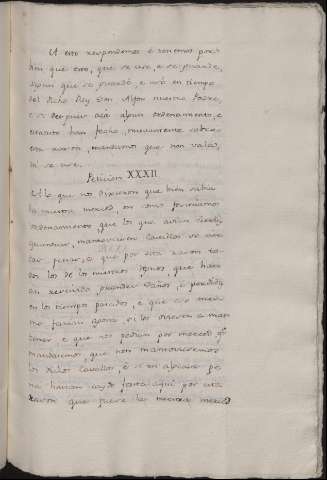 A esto respondemos è tenemos por
bien que esto, que se use, e se guarde,
segun que se guardó, e usó en tiempo
del dicho Rey Don Alfon nuestro Padre,
e si despues acá algun ordenamiento, e
fecho, nuevamente sobre
esta razon, mandamos que non vala,
ni se use.
Peticion XXXII
A lo que nos dixeron que bien sabia
la nuestra merced, en como
ordenamiento que los que avian
mantoviesen Cavallos
e que por esta razon to-
dos los de los nuestros regnos, que havian
daños, è perdidas
en los tiempos pasados, è que eso mes-
mo farian agora si los oviesen a man-
tener, e que nos pedian por merced q.e
mandasemos, que non mantoviesen
los dichos Cavallos, è si en alguna pe-
na havian caydo fasta aqui por esta
razon que fuese la nuestra merced